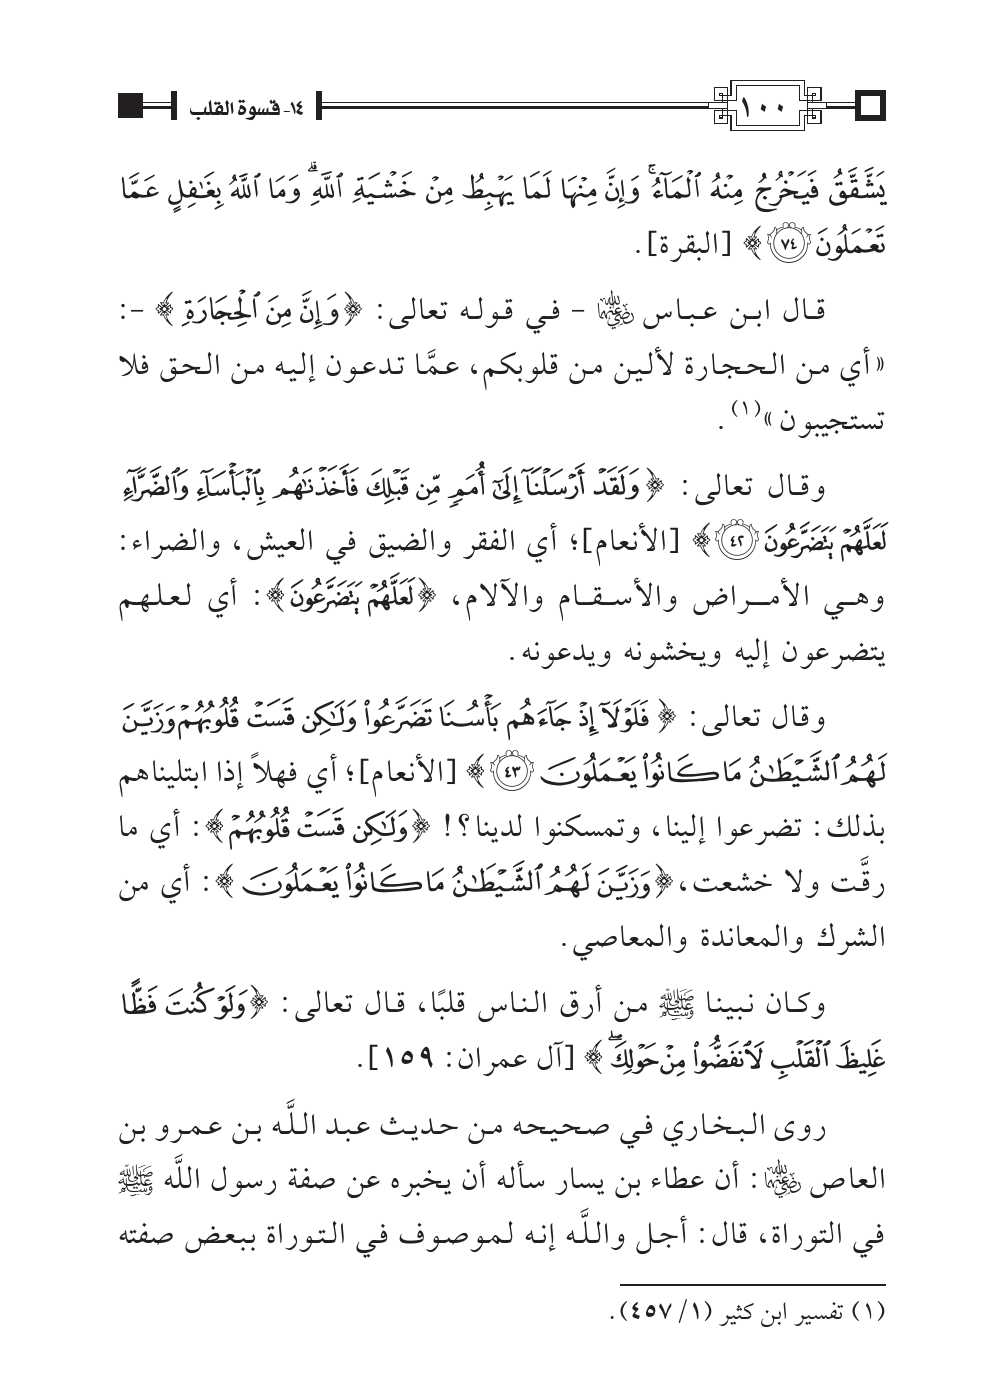 ١٤- قسوة القلب ١٠٠
يَشَّقَّقُ فَيَخۡرُجُ مِنۡهُ ٱلۡمَآءُۚ وَإِنَّ مِنۡهَا لَمَا يَهۡبِطُ مِنۡ خَشۡيَةِ ٱللَّهِۗ وَمَا ٱللَّهُ بِغَٰفِلٍ عَمَّا
تَعۡمَلُونَ ٧٤ ﴾ [البقرة].
قال ابن عباس رضي الله عنهما - في قوله تعالى: ﴿ وَإِنَّ مِنَ ٱلۡحِجَارَةِ ﴾ -:
«أي من الحجارة لألين من قلوبكم، عمَّا تدعون إليه من الحق فلا
تستجيبون»(١).
وقال تعالى: ﴿ وَلَقَدۡ أَرۡسَلۡنَآ إِلَىٰٓ أُمَمٖ مِّن قَبۡلِكَ فَأَخَذۡنَٰهُم بِٱلۡبَأۡسَآءِ وَٱلضَّرَّآءِ
لَعَلَّهُمۡ يَتَضَرَّعُونَ ٤٢ ﴾ [الأنعام]؛ أي الفقر والضيق في العيش، والضراء:
وهي الأمراض والأسقام والآلام، ﴿لَعَلَّهُمۡ يَتَضَرَّعُونَ﴾: أي لعلهم
يتضرعون إليه ويخشونه ويدعونه.
وقال تعالى: ﴿ فَلَوۡلَآ إِذۡ جَآءَهُم بَأۡسُنَا تَضَرَّعُواْ وَلَٰكِن قَسَتۡ قُلُوبُهُمۡ وَزَيَّنَ
لَهُمُ ٱلشَّيۡطَٰنُ مَا كَانُواْ يَعۡمَلُونَ ٤٣ ﴾ [الأنعام]؛ أي فهلاً إذا ابتليناهم
بذلك: تضرعوا إلينا، وتمسكنوا لدينا؟! ﴿وَلَٰكِن قَسَتۡ قُلُوبُهُمۡ﴾: أي ما
رقَّت ولا خشعت، ﴿وَزَيَّنَ لَهُمُ ٱلشَّيۡطَٰنُ مَا كَانُواْ يَعۡمَلُونَ ﴾: أي من
الشرك والمعاندة والمعاصي.
وكان نبينا ﷺ من أرق الناس قلبًا، قال تعالى: ﴿وَلَوۡ كُنتَ فَظًّا
غَلِيظَ ٱلۡقَلۡبِ لَٱنفَضُّواْ مِنۡ حَوۡلِكَۖ ﴾ [آل عمران: ١٥٩].
روى البخاري في صحيحه من حديث عبد اللَّه بن عمرو بن
العاص رضي الله عنهما: أن عطاء بن يسار سأله أن يخبره عن صفة رسول اللَّه ﷺ
في التوراة، قال: أجل واللَّه إنه لموصوف في التوراة ببعض صفته
(١) تفسير ابن كثير (١/ ٤٥٧).